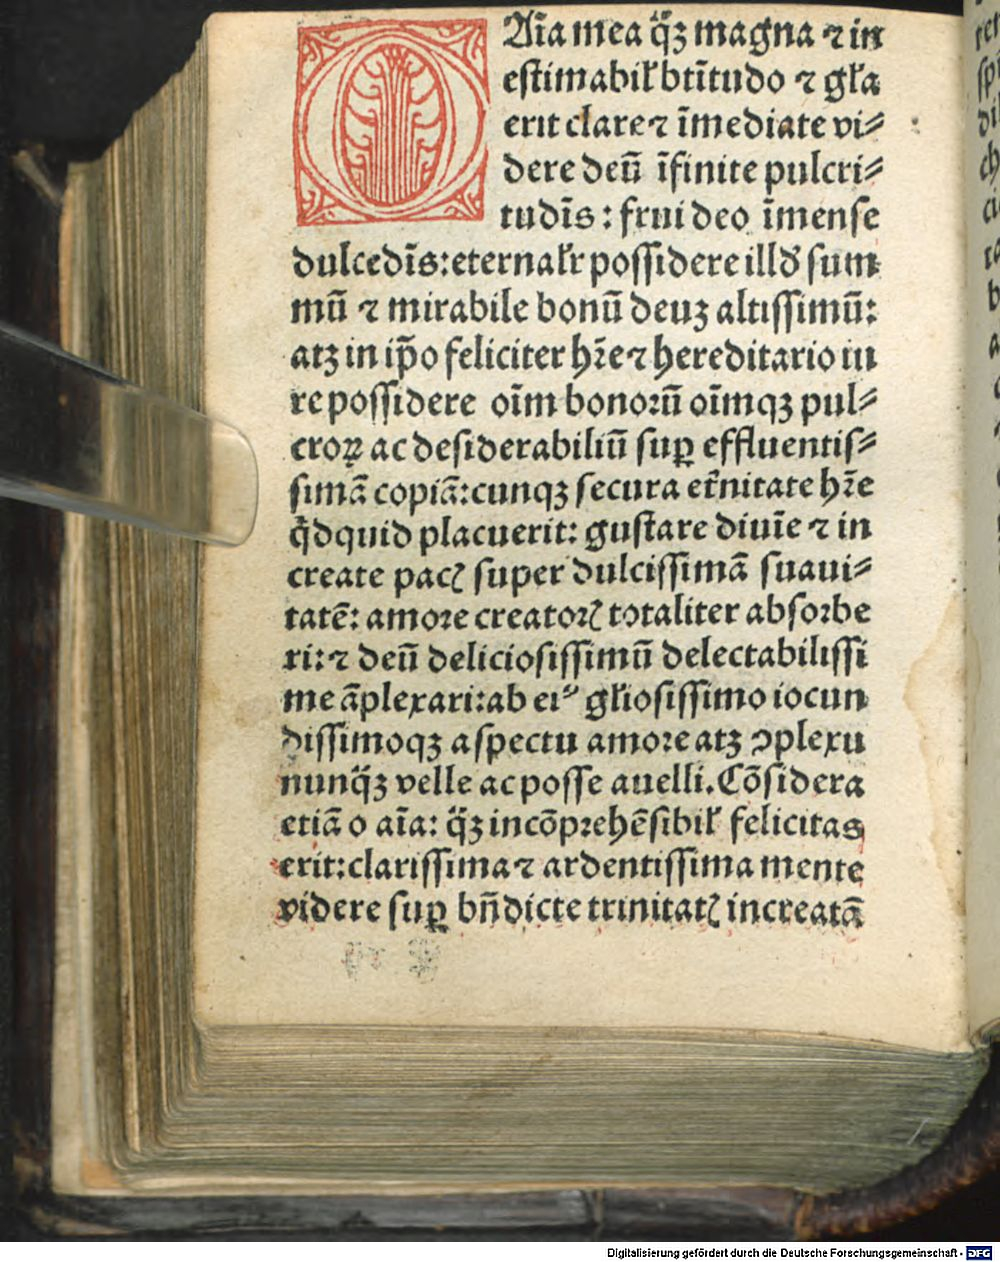 O Aīa mea q̈ꝫ magna ⁊ in
estimabil̛ btītudo ⁊ gl̛a
erit clare ⁊ īmediate vi⸗
dere deū īfinite pulcri⸗
tudīs : frui deo īmense
dulcedīs: eternal̛r possidere illḋ sum
mū ⁊ mirabile bonū deuꝫ altissimū:
atꝫ in ip̄o feliciter hr̄e ⁊ hereditario iu
re possidere oīm bonoꝛū oīmqꝫ pul⸗
croꝝ ac desiderabiliū suꝑ effluentis⸗
simā copiā: cunqꝫ secura et̄nitate hr̄e
q̇dquid placuerit: gustare diuīe ⁊ in
create pacꝭ super dulcissimā suaui⸗
tatē: amoꝛe creatorꝭ totaliter absoꝛbe
ri: ⁊ deū deliciosissimū delectabilissi
me āplexari: ab eiꝰ gl̛iosissimo iocun
dissimoqꝫ aspectu amoꝛe atꝫ ꝯplexu
nunq̈ꝫ velle ac posse auelli. Cōsidera
etiā o aīa: q̈ꝫ incōpꝛehēsibil̛ felicitas
erit: clarissima ⁊ ardentissima mente
videre suꝑ bn̄dicte trinitatꝭ increatā
Digitalisierung gefördert durch die Deutsche Forschungsgemeinschaft - DFG